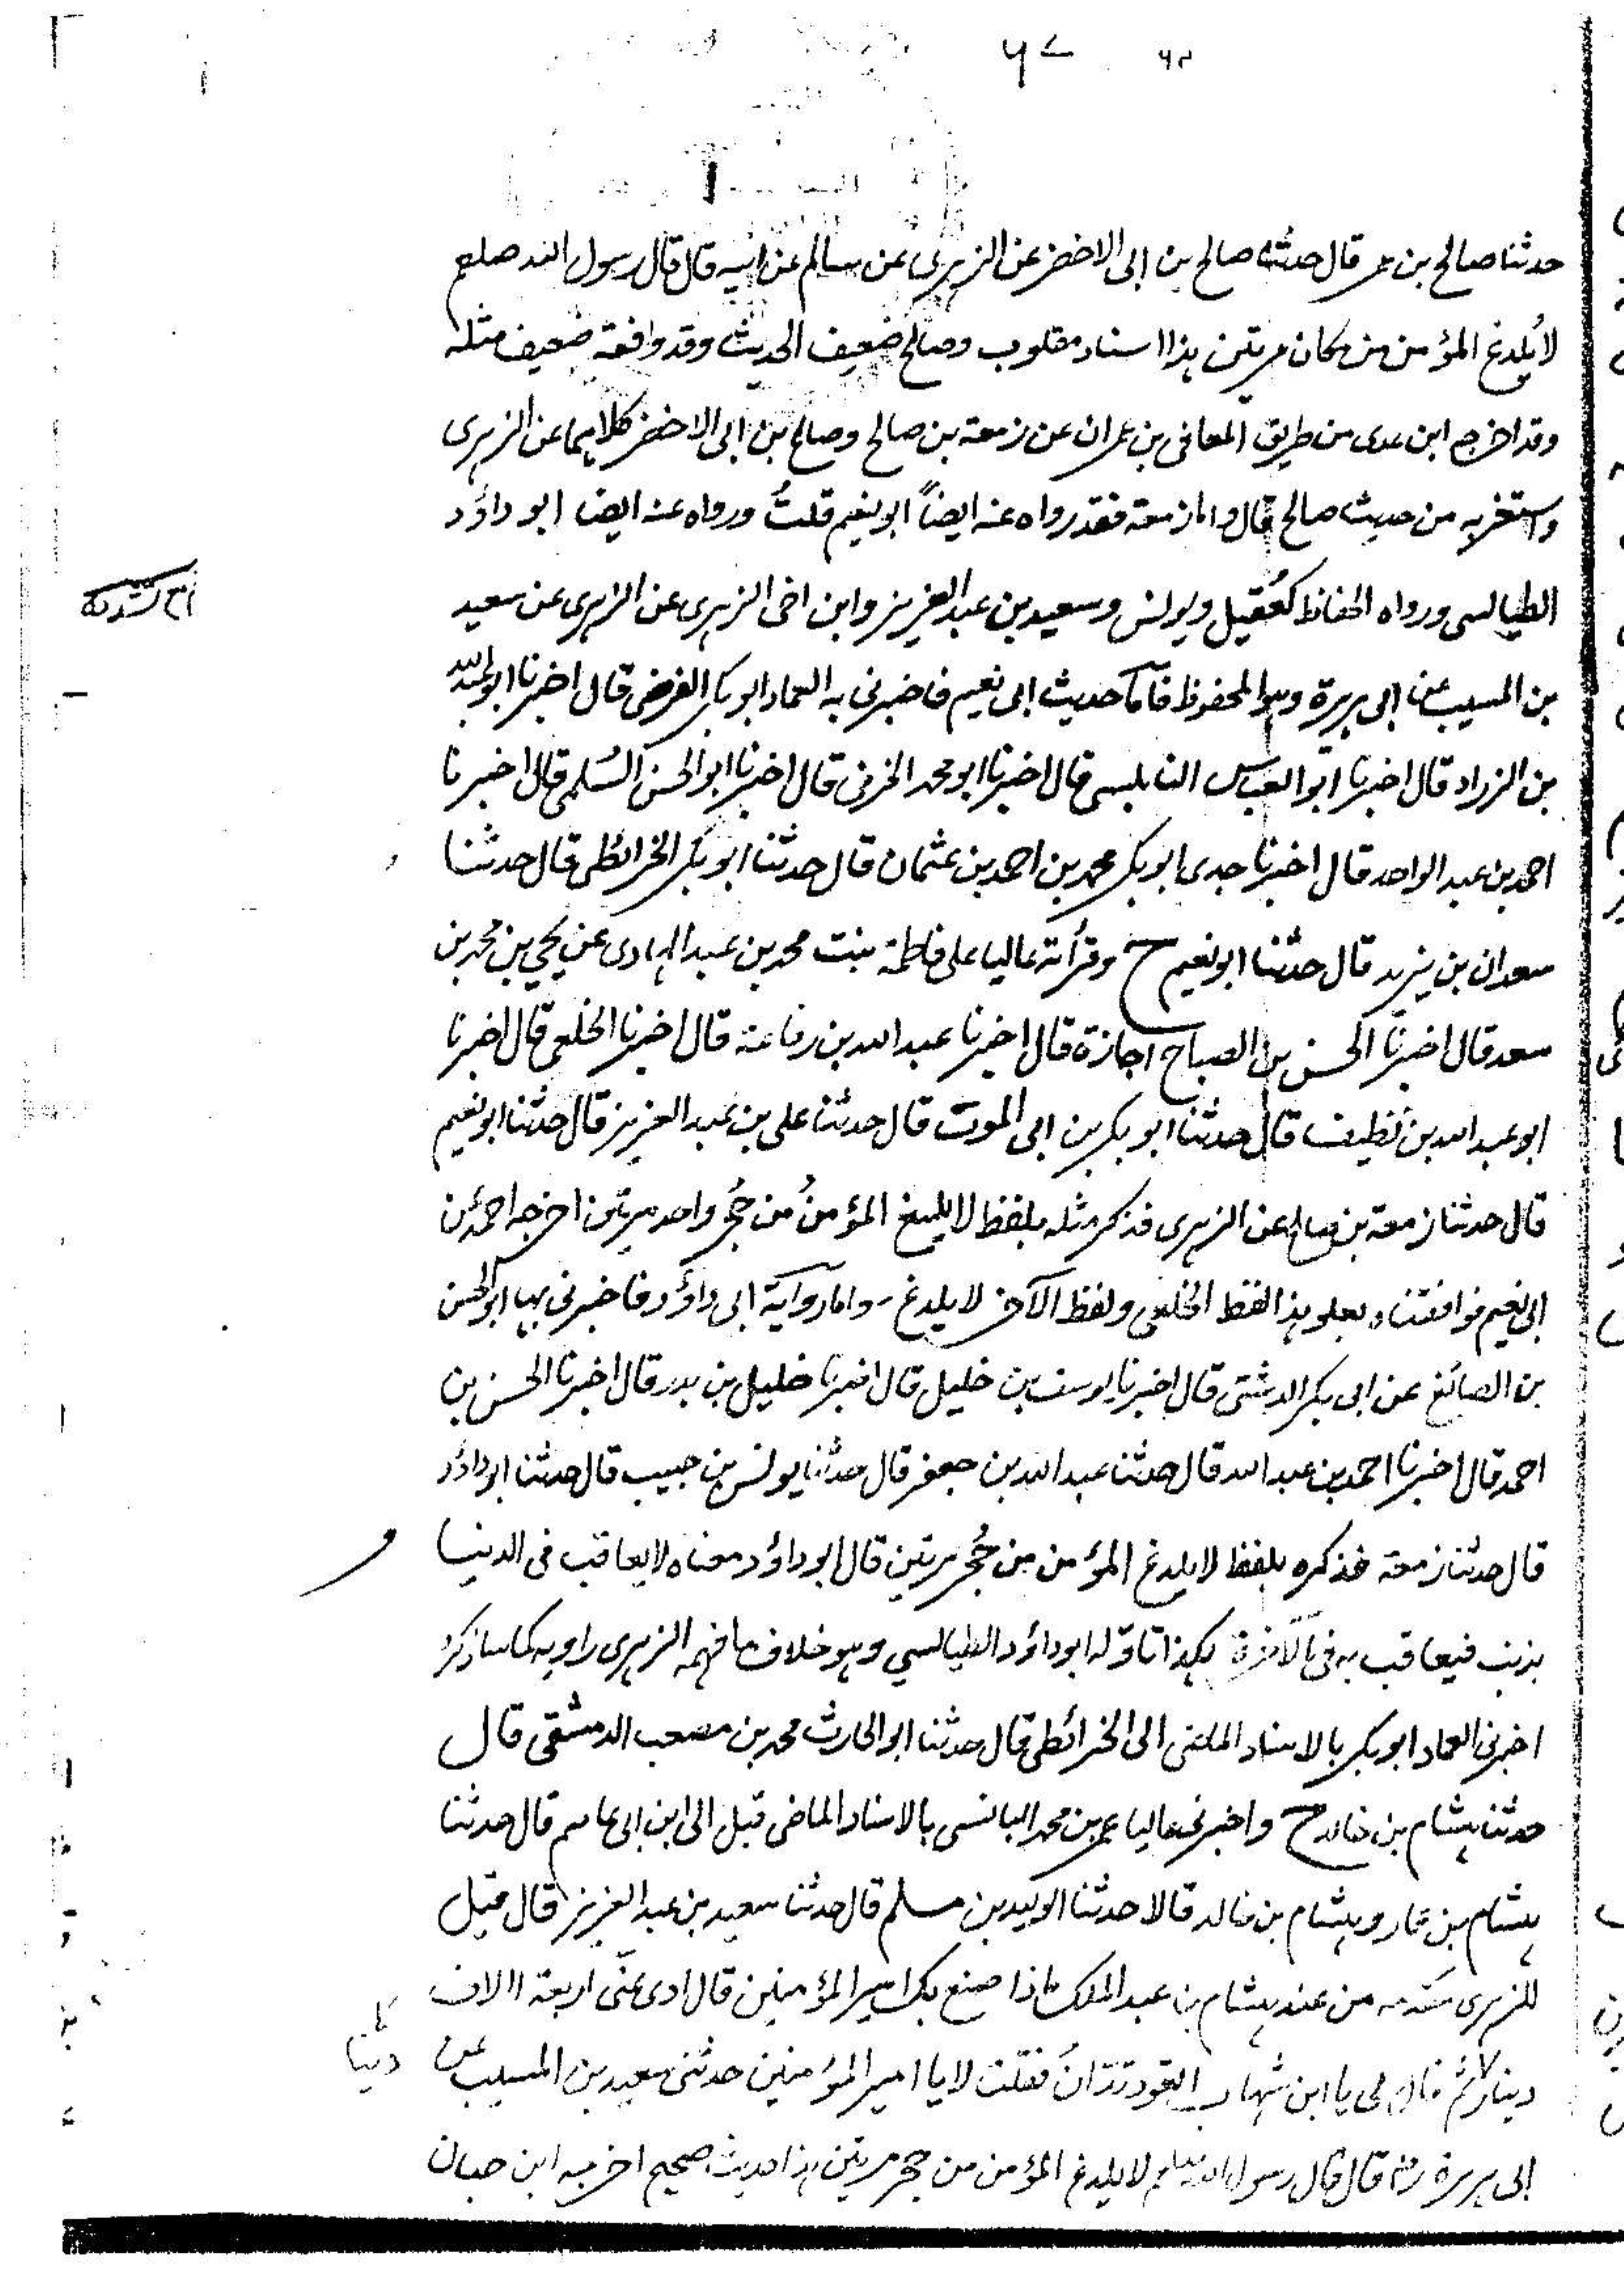 ٦٧
حدثنا صالح بن عمر قال حدثنا صالح بن ابى الاخضر عن الزهرى عن سالم عن ابيه قال قال رسول الله صلعم
لا يُلدغ المؤمن من مكان مرتين هذا اسناد مقلوب وصالح ضعيف الحديث وقد وافقه ضعيف مثله
وقد اخرجه ابن عدى من طريق المعافى بن عمران عن زمعة بن صالح وصالح بن ابى الاخضر كلاهما عن الزهرى
واستغربه من حديث صالح قال واما زمعة فقد رواه عنه ايضاً ابو نعيم قلتُ ورواه عنه ايضا ابو داؤد
الطيالسى ورواه الحفاظ كعُقيل ويونس وسعيد بن عبد العزيز وابن اخى الزهرى عن الزهرى عن سعيد
بن المسيب عن ابى هريرة وهو المحفوظ فاما حديث ابى نعيم فاخبرنى به العماد ابو بكر الفرضى قال اخبرنا ابو عبد الله
بن الزراد قال اخبرنا ابو العباس النابلسى قال اخبرنا ابو محمد الخزنى قال اخبرنا ابو الحسن السُلمى قال اخبرنا
احمد بن عبد الواحد قال اخبرنا جدى ابو بكر محمد بن احمد بن عثمان قال حدثنا ابو بكر الخرائطى قال حدثنا
سعدان بن يزيد قال حدثنا ابو نعيم ح وقرأته عاليا على فاطمة بنت محمد بن عبد الهادى عن يحيى بن محمد بن
سعد قال اخبرنا الحسن بن الصباح اجازة قال اخبرنا عبد الله بن رفاعة قال اخبرنا الخلعى قال اخبرنا
ابو عبد الله بن نظيف قال حدثنا ابو بكر بن ابى الموت قال حدثنا على بن عبد العزيز قال حدثنا ابو نعيم
قال حدثنا زمعة بن صالح عن الزهرى فذكر مثله بلفظ لا يلسع المؤمنُ من جُحر واحد مرتين اخرجه احمد عن
ابى نعيم فوافقناه بعلو هذا لفظ الخلعى ولفظ الآخر لا يلدغ - واما رواية ابى داؤد فاخبرنى بها ابو الحسن
بن الصائغ عن ابى بكر الدشتى قال اخبرنا يوسف بن خليل قال اخبرنا خليل بن بدر قال اخبرنا الحسن بن
احمد قال اخبرنا احمد بن عبد الله قال حدثنا عبد الله بن جعفر قال حدثنا يونس بن حبيب قال حدثنا ابو داؤد
قال حدثنا زمعة فذكره بلفظ لا يلدغ المؤمن من جُحر مرتين قال ابو داؤد معناه لا يعاقب فى الدنيا
بذنب فيعاقب به فى الآخرة هكذا تاوّله ابو داؤد الطيالسي وهو خلاف ما فهمه الزهرى راويه كما ساذكره
اخبرنى العماد ابو بكر بالاسناد الماضى الى الخرائطى قال حدثنا ابو الحارث محمد بن مصعب الدمشقى قال
حدثنا هشام بن خالد ح واخبرنى عاليا عمر بن محمد البالسى بالاسناد الماضى قبل الى ابن ابى عاصم قال حدثنا
هشام بن عمار وهشام بن خالد قالا حدثنا الوليد بن مسلم قال حدثنا سعيد بن عبد العزيز قال قيل
للزهرى مقدمه من عند هشام بن عبد الملك ماذا صنع بك امير المؤمنين قال ادى عنّى اربعة الاف
دينار ثم قال لى يا ابن شهاب اتعود تدّانُ فقلت لا يا امير المؤمنين حدثنى سعيد بن المسيب عن
ابى هريرة رض قال قال رسول الله صلعم لا يلدغ المؤمن من جحر مرتين هذا حديث صحيح اخرجه ابن حبان